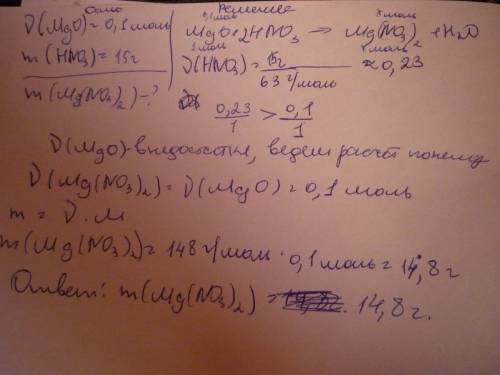 Дано
ν(MgO)=0,1моль
m(HNO3)=15г
m(Mg(NO3)2)-?
Решение
0,1моль x моль
MgO+2HNO3 → Mg(NO3)2+H2O
1моль 1моль
ν(HNO3)=15г/63 г/моль ≈0,23
0,23/1 > 0,1/1
ν(MgO)-в недостатке, ведем расчёт по нему
ν(Mg(NO3)2)=ν(MgO)=0,1 моль
m = ν·M
m(Mg(NO3)2)=148г/моль·0,1моль=14,8г
Ответ: m(Mg(NO3)2)= 14,8г.